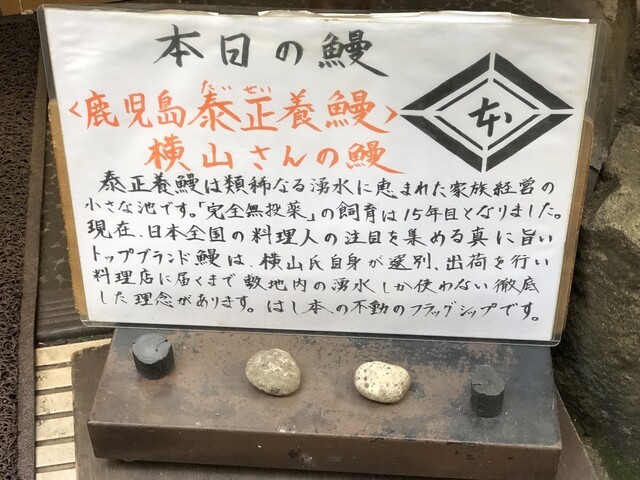 本日の鰻
たいせい
〈鹿児島泰正養鰻〉
横山さんの鰻
本
泰正養鰻は類稀なる湧水に恵まれた家族経営の
小さな池です。「完全無投薬」の飼育は15年目となりました。
現在、日本全国の料理人の注目を集める真に旨い
トップブランド鰻は、横山氏自身が選別、出荷を行い
料理店に届くまで敷地内の湧水しか使わない徹底
した理念があります。はし本の不動のフラッグシップです。